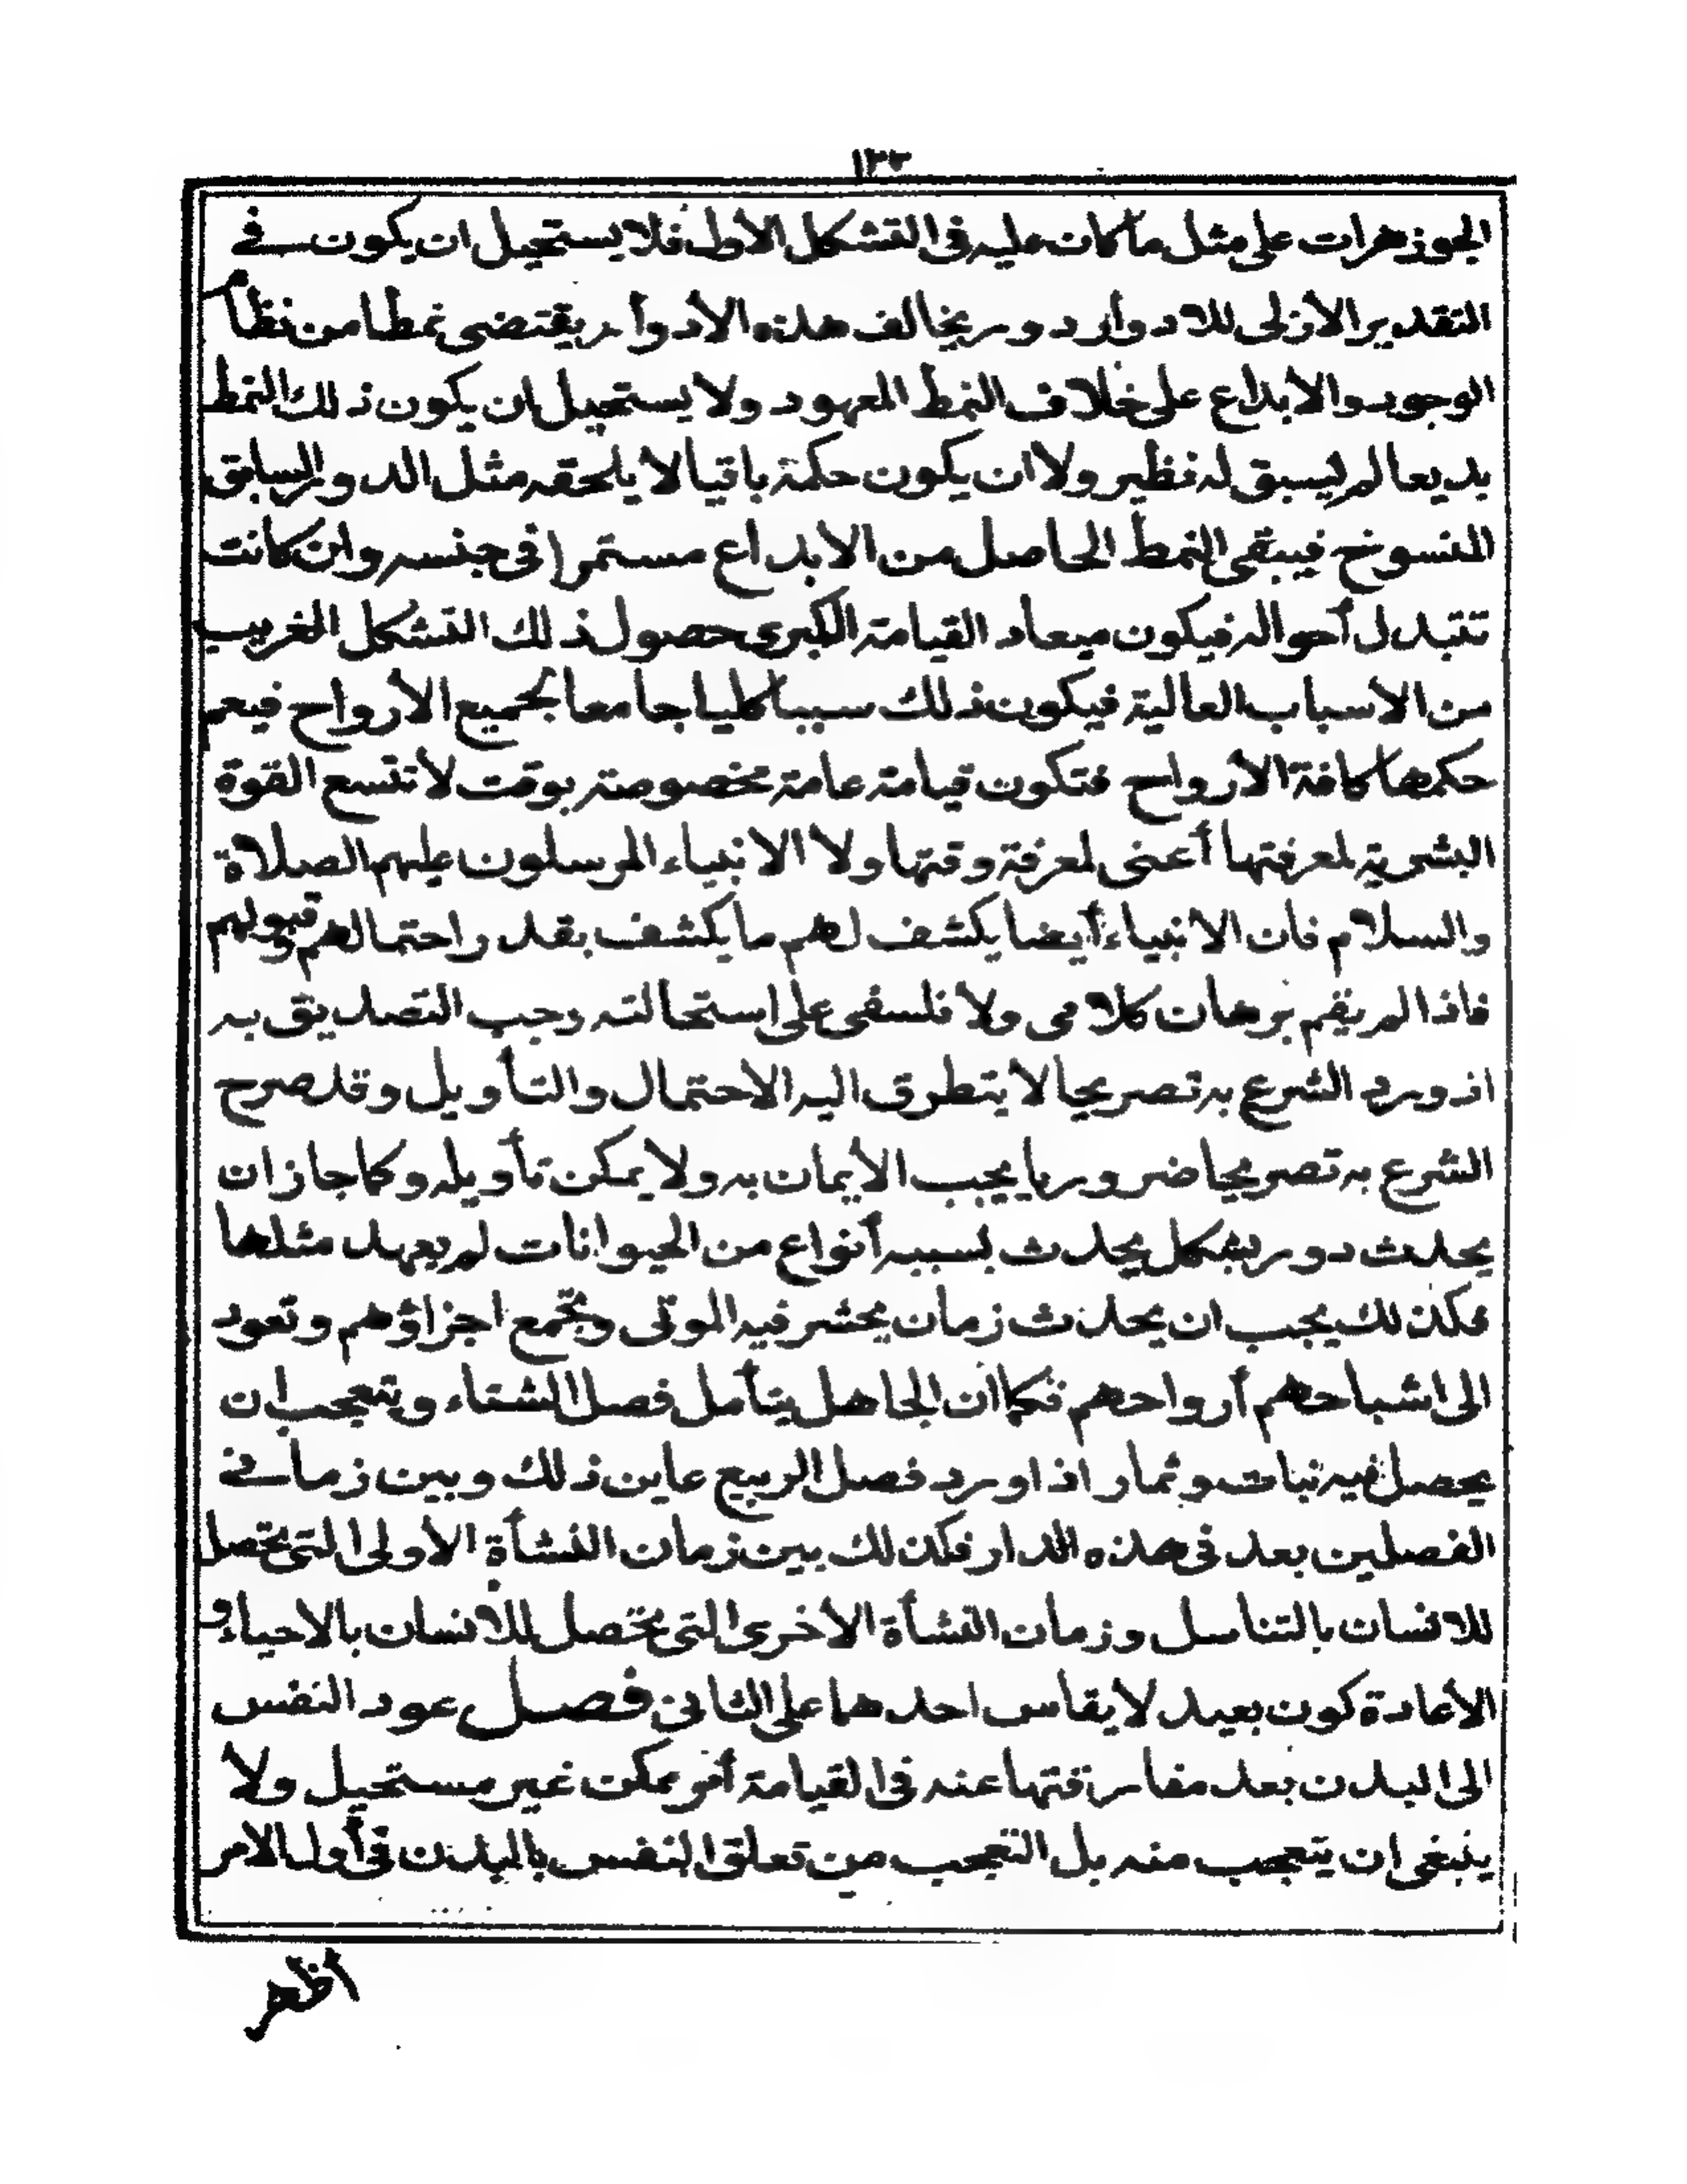 ١٣٣
الجوزهرات على مثل ما كان عليه فى التشكل الأول فلا يستحيل ان يكون في
التقدير الأزلى للادوار دور يخالف هذه الأدوار يقتضى نمطا من نظام
الوجود والابداع على خلاف النمط المعهود ولا يستحيل ان يكون ذلك النمط
بديعا لم يسبق له نظير ولا ان يكون حكمة باقيا لا يلحقه مثل الدور السابق
المنسوخ فيبقى النمط الحاصل من الابداع مستمرا فى جنسه وان كانت
تتبدل أحواله فيكون ميعاد القيامة الكبرى حصول ذلك التشكل الغريب
من الأسباب العالية فيكون ذلك سببا كليا جامعا لجميع الأرواح فيعم
حكمها كافة الأرواح فتكون قيامة عامة مخصوصة بوقت لا تتسع القوة
البشرية لمعرفتها أعنى لمعرفة وقتها ولا الانبياء المرسلون عليهم الصلاة
والسلام فان الانبياء أيضا يكشف لهم ما يكشف بقدر احتمالهم وقبولهم
فاذا لم يقم برهان كلامى ولا فلسفى على استحالته وجب التصديق به
اذ ورد الشرع به تصريحا لا يتطرق اليه الاحتمال والتأويل وقد صرح
الشرع به تصريحا ضروريا يجب الأيمان به ولا يمكن تأويله وكما جاز ان
يحدث دور بشكل يحدث بسببه أنواع من الحيوانات لم يعهد مثلها
فكذلك يجب ان يحدث زمان يحشر فيه الموتى وتجمع اجزاؤهم وتعود
الى اشباحهم أرواحهم فكما ان الجاهل يتأمل فصل الشتاء ويتعجب ان
يحصل فيه نبات وثمار اذا ورد فصل الربيع عاين ذلك وبين زماني
الفصلين بعد فى هذه الدار فكذلك بين زمان النشأة الأولى التى تحصل
للانسان بالتناسل وزمان النشأة الأخرى التى تحصل للانسان بالاحياء و
الأعادة كون بعيد لا يقاس احدهما على الثانى فصل عود النفس
الى البدن بعد مفارقتها عنه فى القيامة أمر ممكن غير مستحيل ولا
ينبغى ان يتعجب منه بل التعجب من تعلق النفس بالبدن فى أول الامر
اظهر